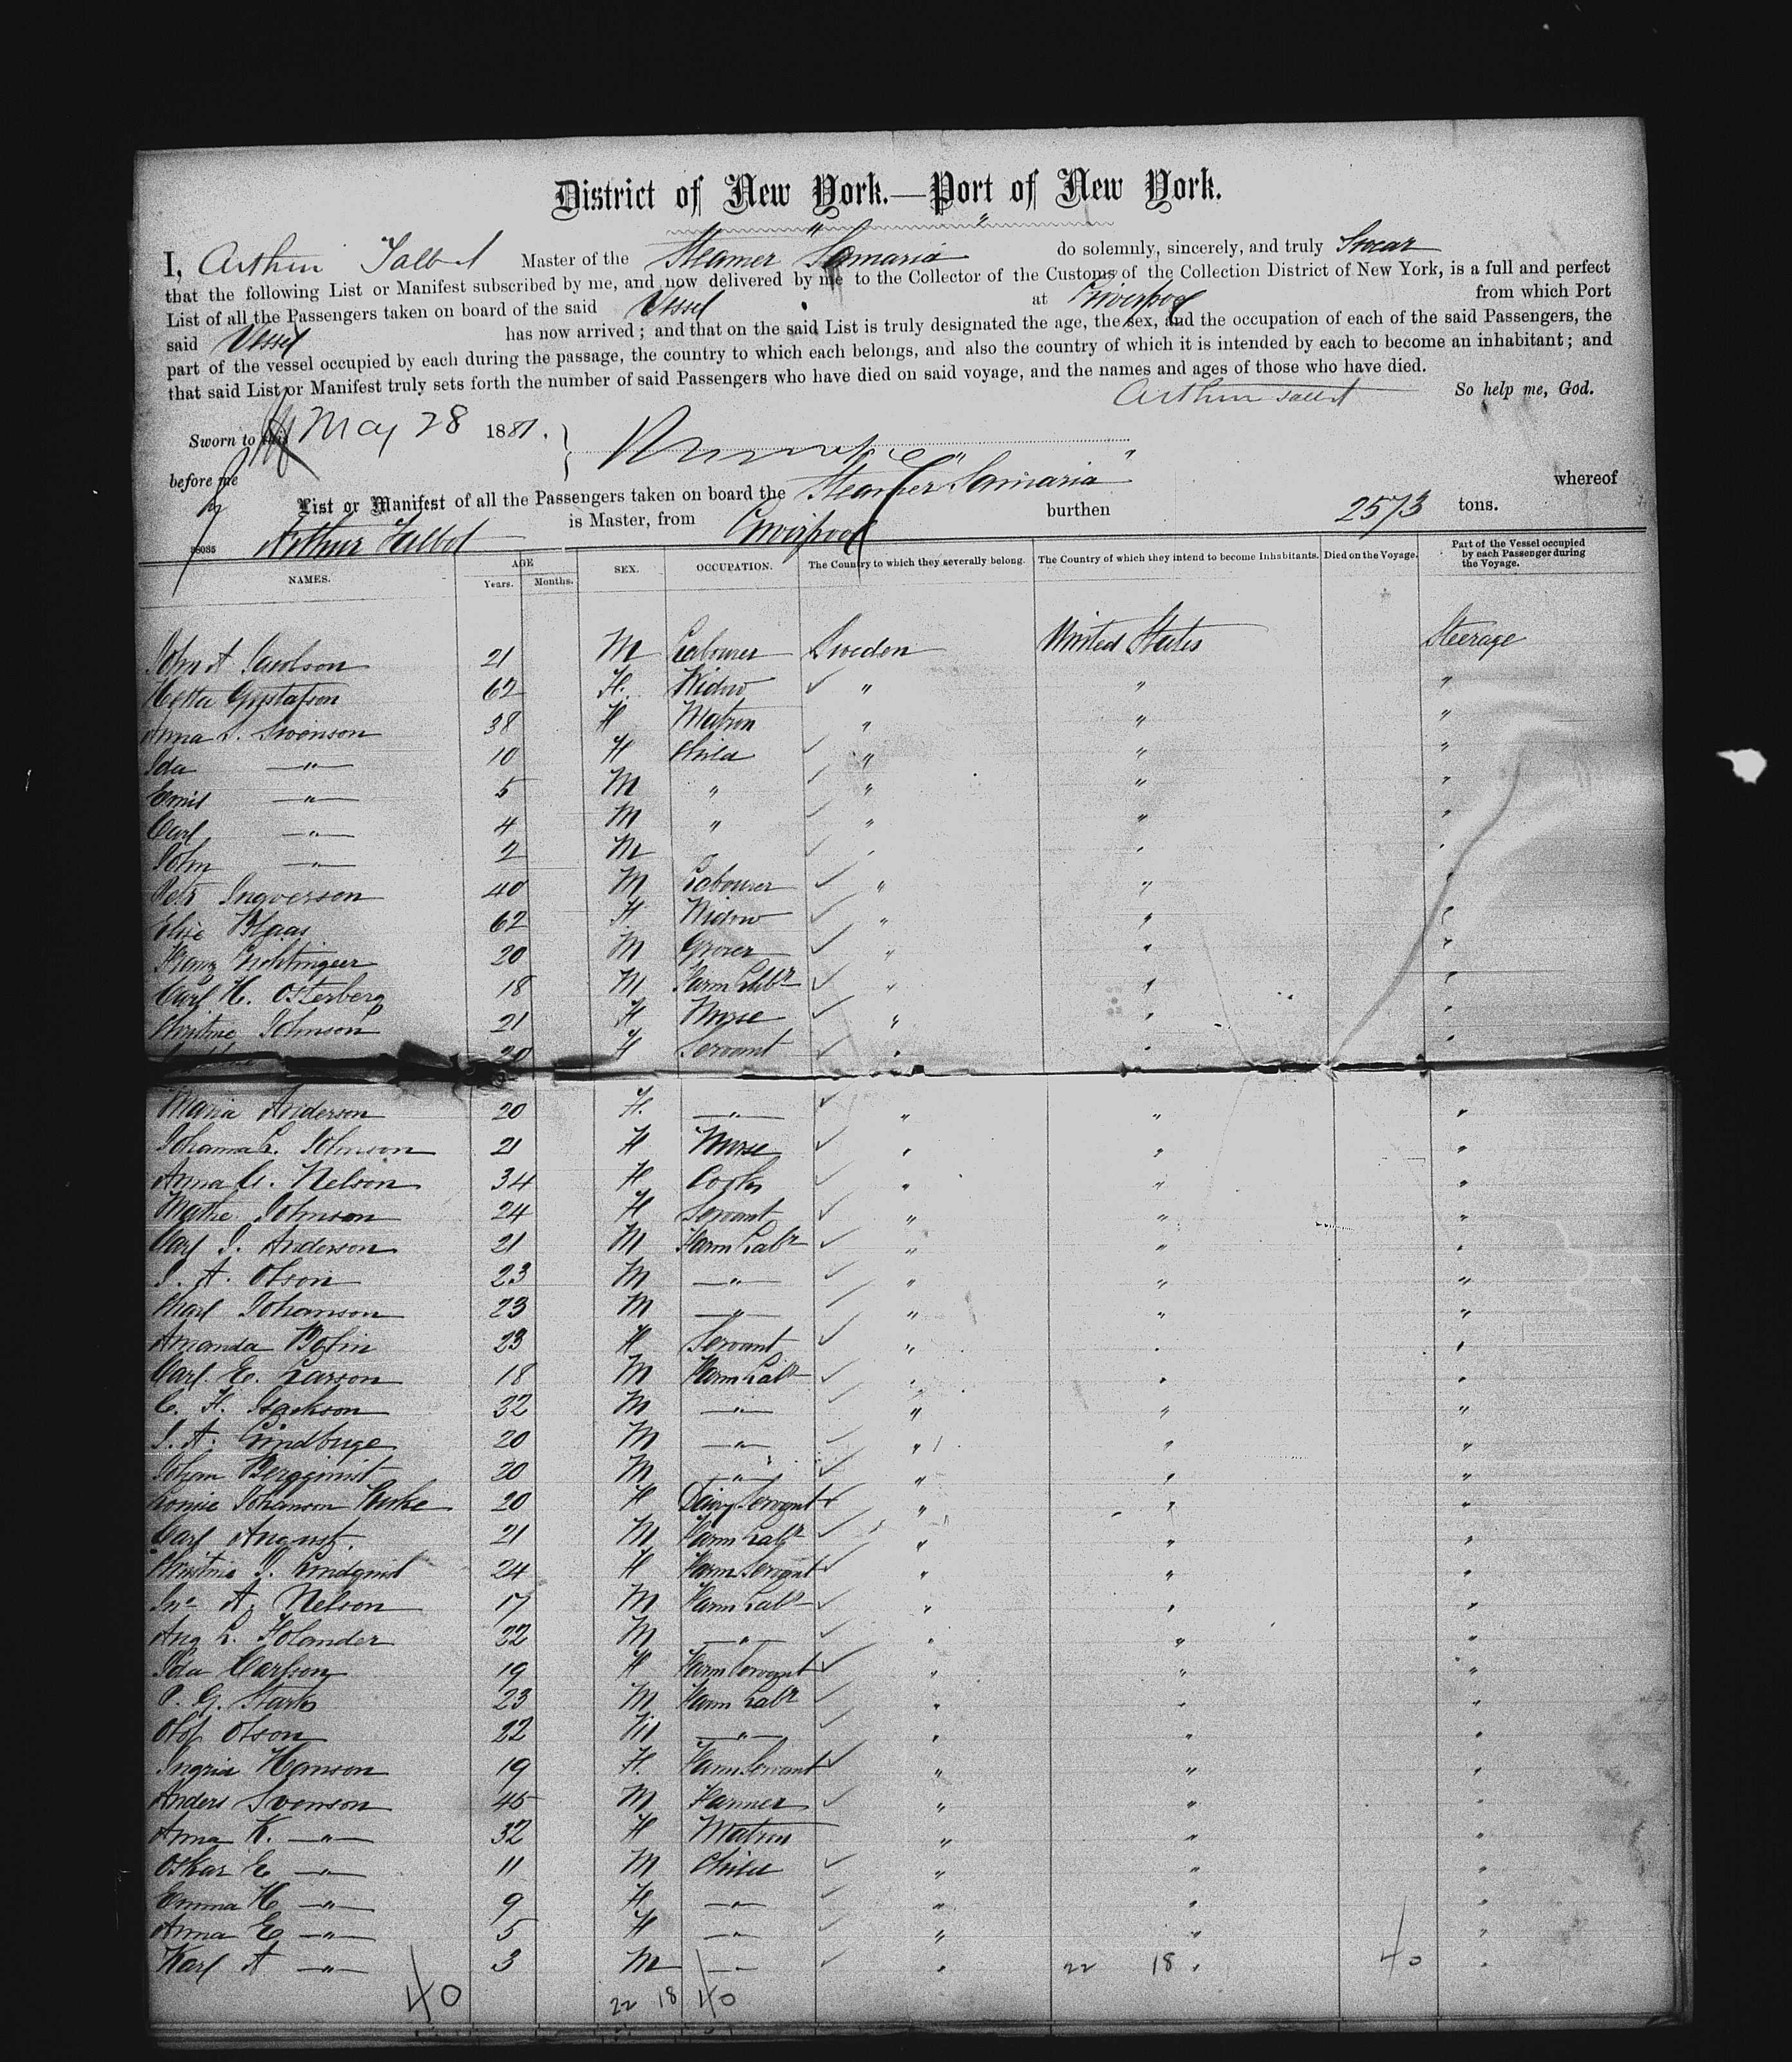 District of New York.—Port of New York.
I, Arthur Talbot Master of the Steamer "Samaria" do solemnly, sincerely, and truly Swear
that the following List or Manifest subscribed by me, and now delivered by me to the Collector of the Customs of the Collection District of New York, is a full and perfect
List of all the Passengers taken on board of the said Vessel at Liverpool from which Port
said Vessel has now arrived; and that on the said List is truly designated the age, the sex, and the occupation of each of the said Passengers, the
part of the vessel occupied by each during the passage, the country to which each belongs, and also the country of which it is intended by each to become an inhabitant; and
that said List or Manifest truly sets forth the number of said Passengers who have died on said voyage, and the names and ages of those who have died.
Arthur Talbot So help me, God.
Sworn to this May 28 1881.
before me
List or Manifest of all the Passengers taken on board the Steamer "Samaria" whereof
Arthur Talbot is Master, from Liverpool burthen 2573 tons.
NAMES. AGE Years. Months. SEX. OCCUPATION. The Country to which they severally belong. The Country of which they intend to become Inhabitants. Died on the Voyage. Part of the Vessel occupied by each Passenger during the Voyage.
John A 21 M Labourer Sweden United States Steerage
Gustafson 62 F. Widow " " "
Anna S. Swenson 38 F Matron " " "
Ida —"— 10 F Child " " "
Emil —"— 5 M " " " "
Carl —"— 4 M " " " "
John —"— 2 M " " " "
Petr Ingverson 40 M Labourer " " "
Elsie 62 F. Widow " " "
20 M Grocer " " "
Carl H. Osterberg 18 M Farm Labr " " "
Christine Johnson 21 F Nurse " " "
20 F Servant " " "
Maria Anderson 20 F. —"— " " "
Johanna L. Johnson 21 F Nurse " " "
Anna C. Nelson 34 F Cook " " "
Mathe Johnson 24 F Servant " " "
Carl J. Anderson 21 M Farm Labr " " "
J. A. Olson 23 M —"— " " "
Charl Johanson 23 M —"— " " "
Amanda Bolin 23 F Servant " " "
Carl E. Larson 18 M Farm Labr " " "
C. F. Isackson 32 M —"— " " "
J. A. 20 M —"— " " "
Johan Bergquist 20 M —"— " " "
Johanson 20 F Dairy Servant " " "
Carl August 21 M Farm Labr " " "
Christine J. Lindquist 24 F Farm Servant " " "
Jno A. Nelson 17 M Farm Labr " " "
Aug L. Holander 22 M —"— " " "
Ida Carlson 19 F Farm Servant " " "
P. G. Stark 23 M Farm Labr " " "
Olof Olson 22 M —"— " " "
Ingrid Hanson 19 F. Farm Servant " " "
Anders Svenson 45 M Farmer " " "
Anna K. —"— 32 F Matron " " "
Oskar E —"— 11 M Child " " "
Emma H —"— 9 F. —"— " " "
Anna E —"— 5 F —"— " " "
Karl A —"— 3 M —"— " 22 18 " 40 "
40 22 18 40